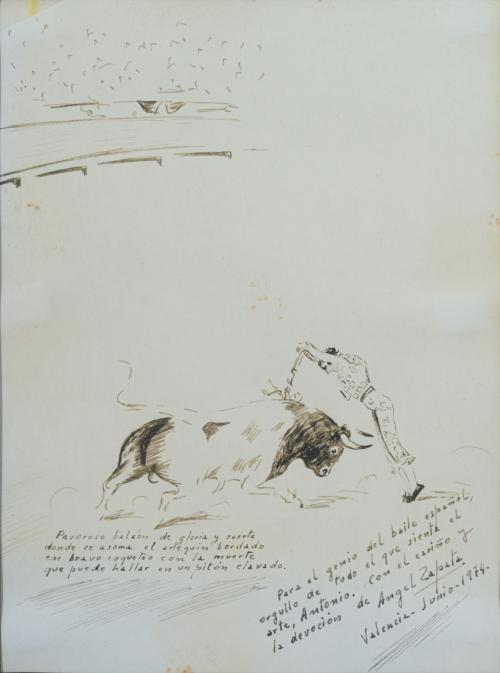 Pavoroso balcón de gloria y suerte
donde se asoma el arlequín bordado
en bravo coqueteo con la muerte
que puede hallar en un pitón clavado.
Para el genio del baile español,
orgullo de todo el que sienta el
arte, Antonio. Con el cariño y
la devoción de Angel Zapata
Valencia - Junio - 1974.